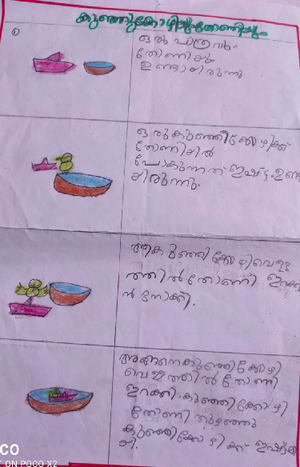 കുഞ്ഞിക്കോഴിയും തോണിയും
ഒരു പാത്രവും
തോണിയും
ഉണ്ടായിരുന്നു
ഒരു കുഞ്ഞിക്കോഴിക്ക്
തോണിയിൽ
പോകുന്നത് ഇഷ്ട്ട ഉണ്ടാ
യിരുന്നു.
ആ കുഞ്ഞിക്കോഴി വെള്ള
ത്തിൽ തോണി ഇറക്കാ
ൻ നോക്കി.
അങ്ങനെ കുഞ്ഞിക്കോഴി
വെള്ളത്തിൽ തോണി
ഇറക്കി. കുഞ്ഞിക്കോഴി
തോണി തുഴഞ്ഞു
കുഞ്ഞിക്കോഴിക്ക് ഇഷ്ട്ടമാ
യി.
CO
ON POCO X2